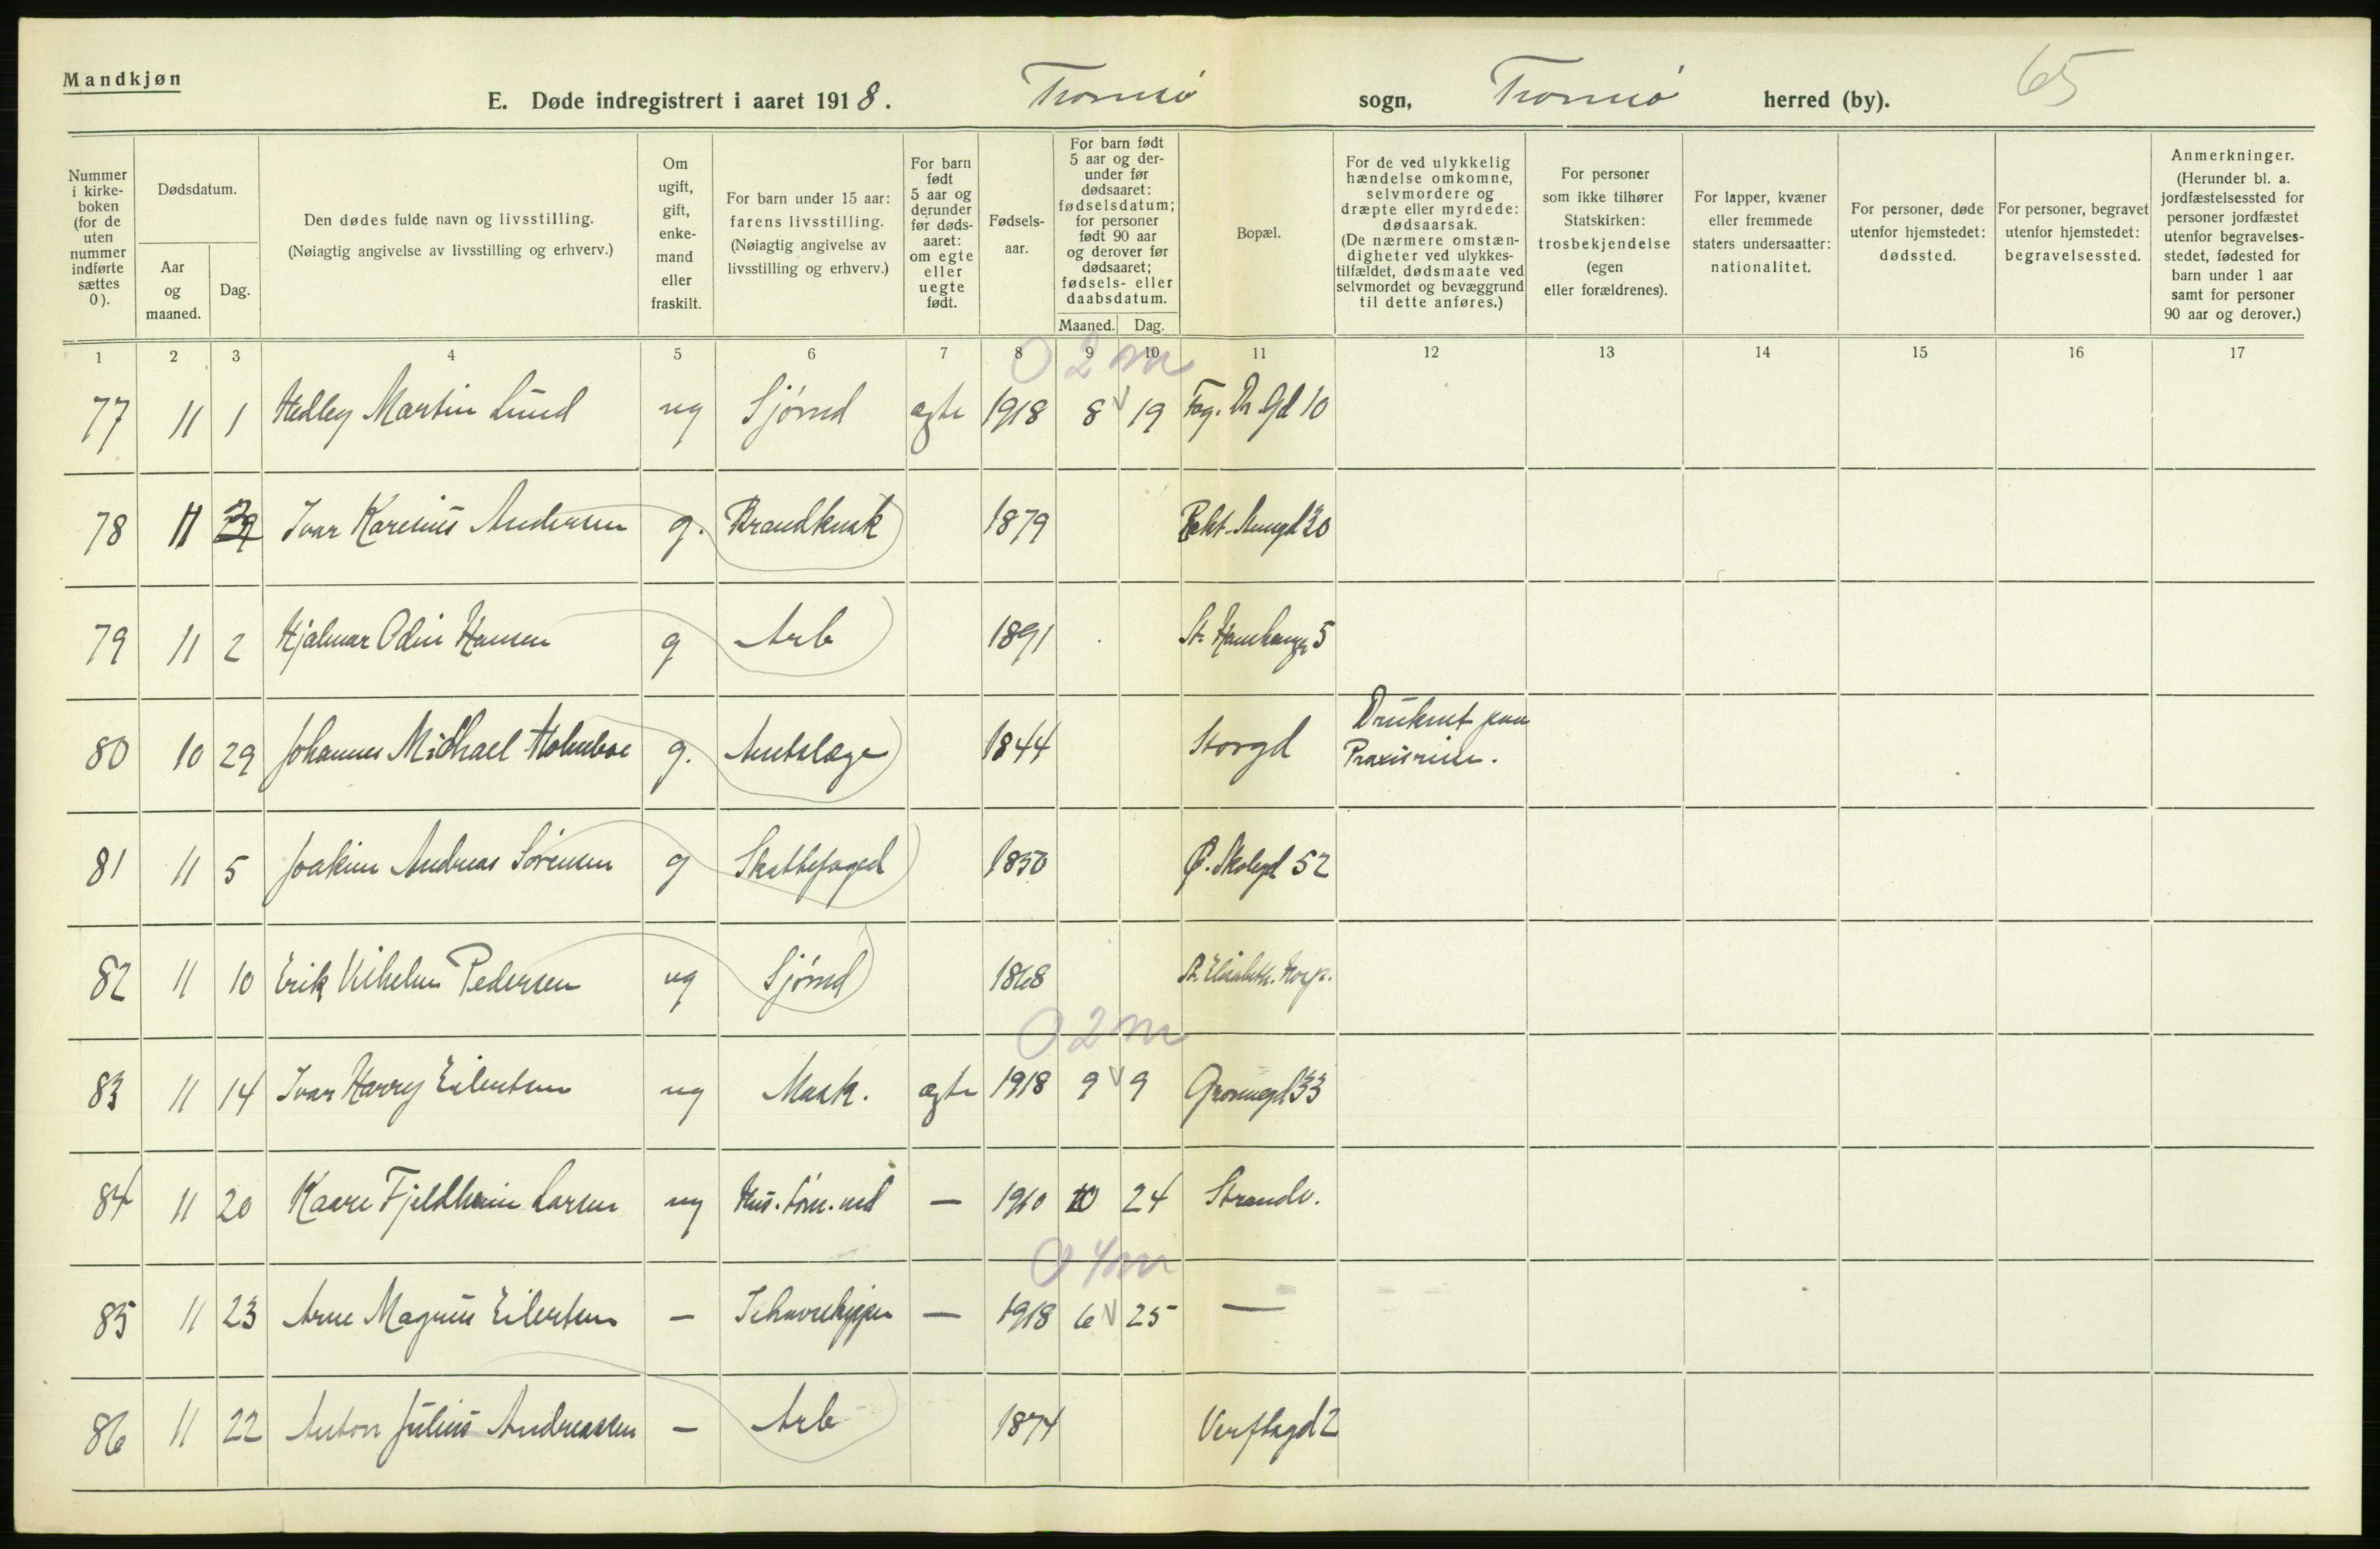 Mandkjøn
E. Døde indregistrert i aaret 1918. Tromsø sogn, Tromsø herred (by). 65
Nummer i kirke- boken (for de uten nummer indførte sættes 0).
Dødsdatum.
Aar og maaned.
Dag.
Den dødes fulde navn og livsstilling.
(Nøiagtig angivelse av livsstilling og erhverv.)
Om ugift, gift, enke- mand eller fraskilt.
For barn under 15 aar: farens livsstilling. (Nøiagtig angivelse av livsstilling og erhverv.)
For barn født 5 aar og derunder før døds- aaret: om egte eller uegte født.
Fødsels- aar.
For barn født 5 aar og der- under før dødsaaret: fødselsdatum; for personer født 90 aar og derover før dødsaaret; fødsels- eller daabsdatum.
Maaned. Dag.
Bopæl.
For de ved ulykkelig hændelse omkomne, selvmordere og dræpte eller myrdede: dødsaarsak. (De nærmere omstæn- digheter ved ulykkes- tilfældet, dødsmaate ved selvmordet og bevæggrund til dette anføres.)
For personer som ikke tilhører Statskirken: trosbekjendelse (egen eller forældrenes).
For lapper, kvæner eller fremmede staters undersaatter: nationalitet.
For personer, døde utenfor hjemstedet: dødssted.
For personer, begravet utenfor hjemstedet: begravelsessted.
Anmerkninger. (Herunder bl. a. jordfæstelsessted for personer jordfæstet utenfor begravelses- stedet, fødested for barn under 1 aar samt for personer 90 aar og derover.)
1 2 3 4 5 6 7 8 9 10 11 12 13 14 15 16 17
0 2 m
77 11 1 Hedley Martin Lund ug Sjømd ægte 1918 8 19 Gd 10
78 11 Ivar Karenius Andersen g. Brandkusk 1879 30
79 11 2 Hjalmar Odin Hansen g Arb 1891 St. Hanshaugen 5
80 10 29 Johannes Michael Holmboe g. Amtslæge 1844 Storgd Druknet paa
Praxisreise.
81 11 5 Joakim Andreas Sørensen g Skattefoged 1850 Ø. Skolegd 52
82 11 10 Erik Vilhelm Pedersen ug Sjømd 1868 St. Elisabeth. Hosp.
0 2 m
83 11 14 Ivar Harry Eilertsen ug Mask. ægte 1918 9 9 Grønnegd 33
84 11 20 Kaare Fjeldheim Larsen ug Hus.tøm.md — 1910 10 24 Strandv.
0 4 m
85 11 23 Arne Magnus Eilertsen — — 1918 6 25 —
86 11 22 Anton Julius Andreassen — Arb 1874 Verftsgd 2